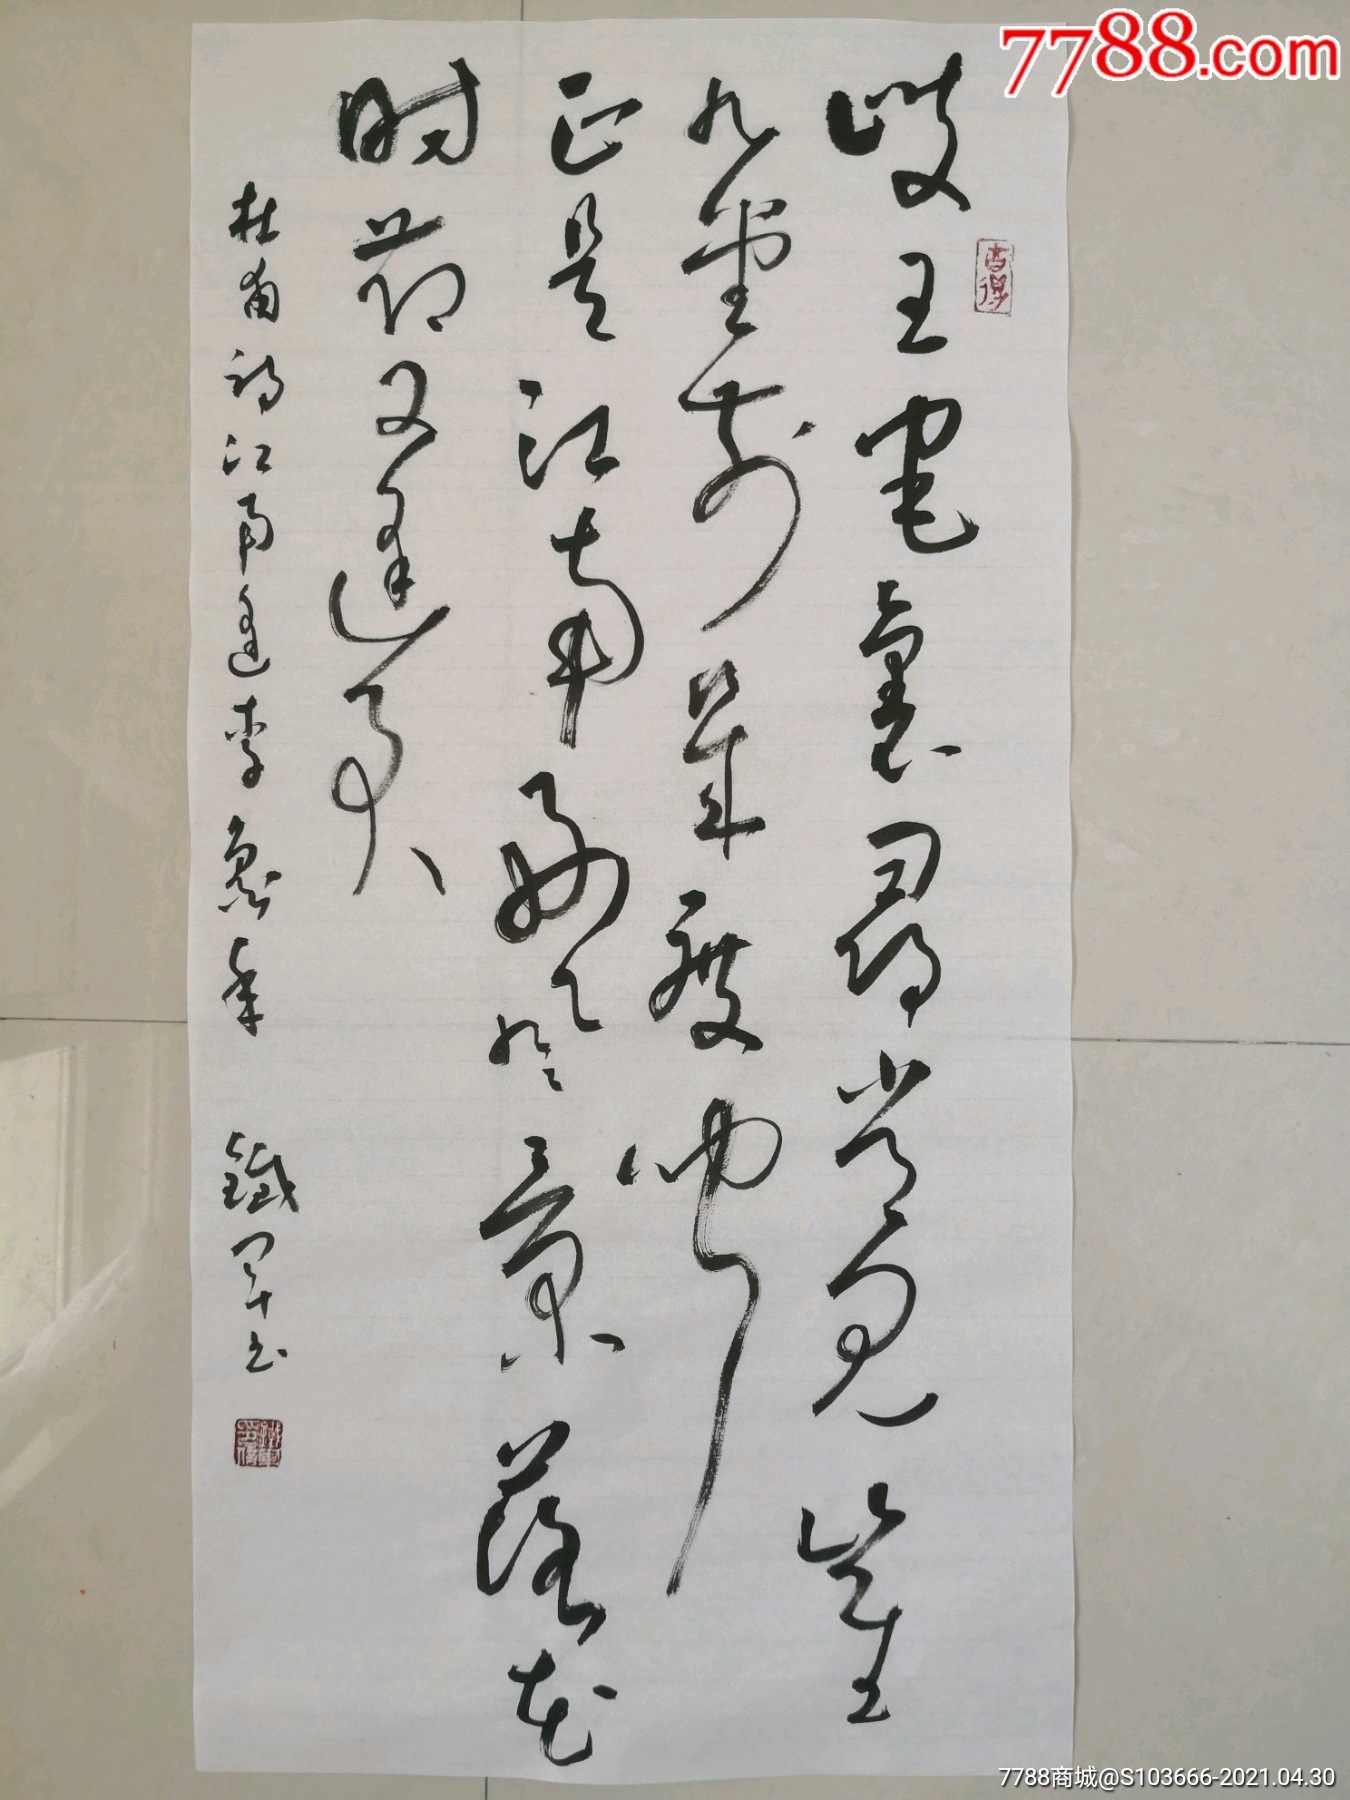 7788.com
岐王宅裏尋常見崔
九堂前幾度聞
正是江南好風景落花
時節又逢君
杜甫詩江南逢李龜年 鐵軍書
7788商城@S103666-2021.04.30